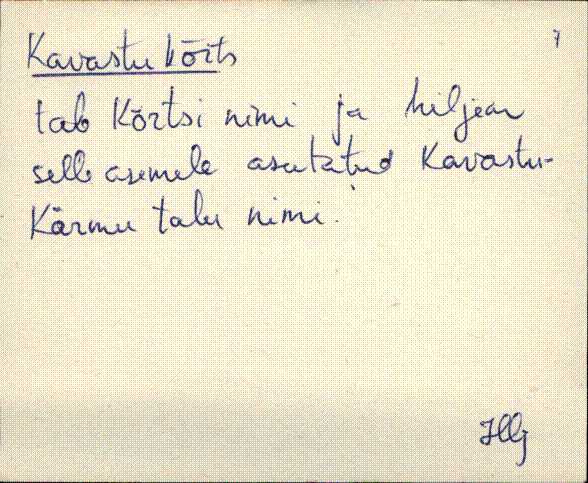 7
Kavastu kõrts
tab kõrtsi nimi ja hiljem
selle asemele asutatud Kavastu-
Kärmu talu nimi.